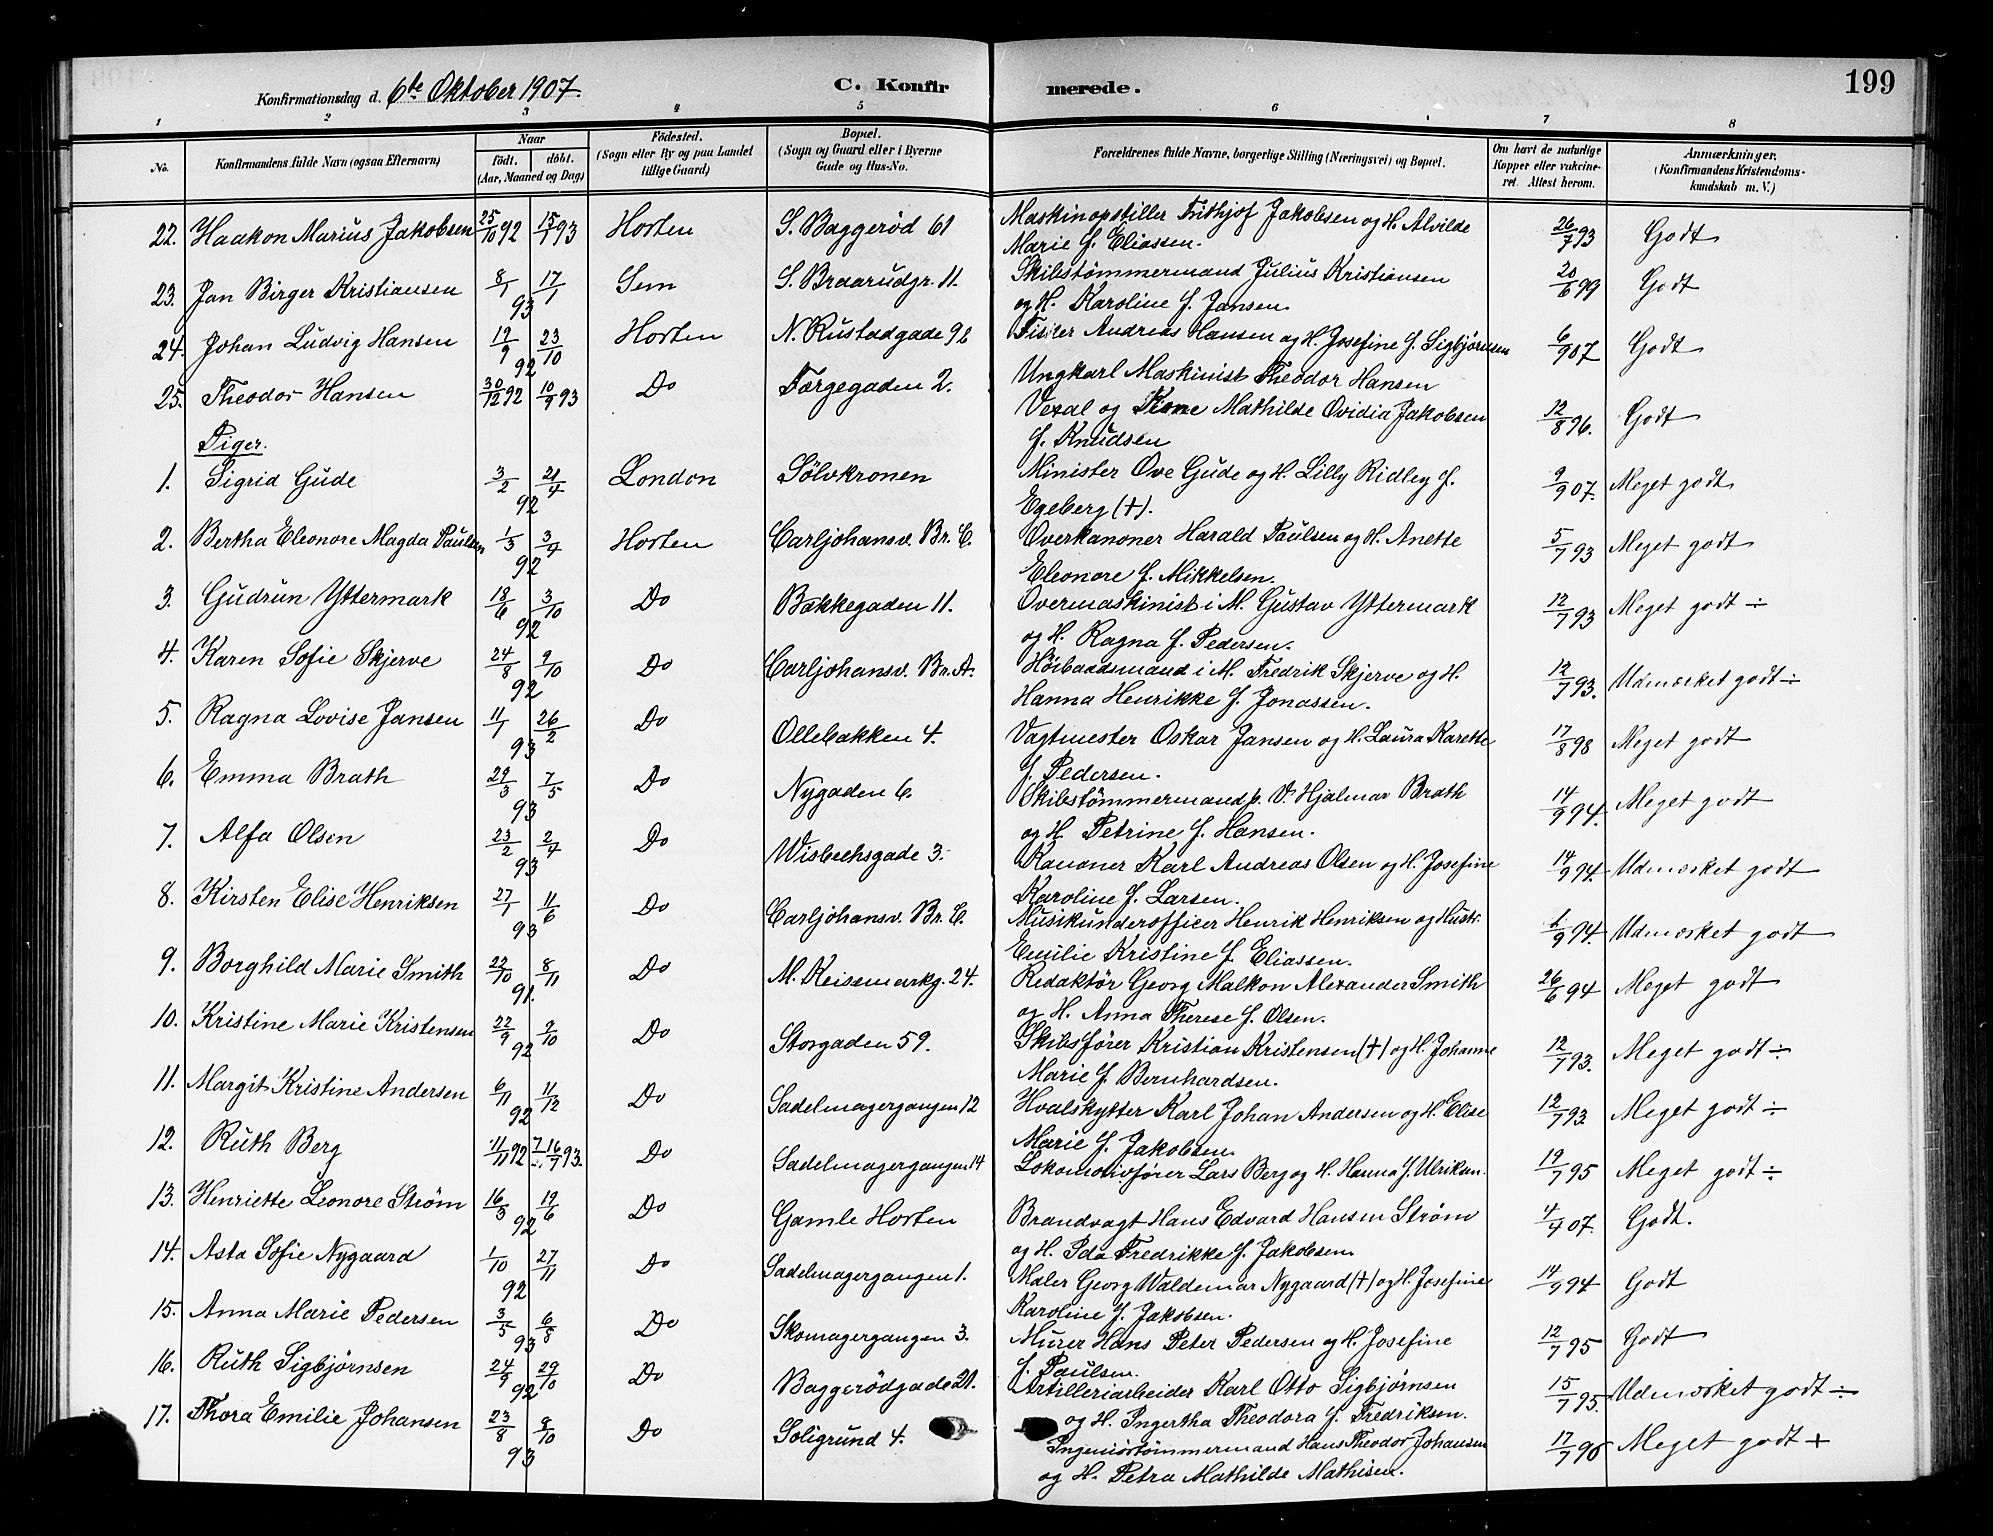 Konfirmationsdag d. 6te Oktober 1907. C. Konfirmerede. 199
1 2 3 4 5 6 7 8
No. Konfirmandens fulde Navn (ogsaa Efternavn) Naar født. døbt. (Aar, Maaned og Dag) Fødested. (Sogn eller By og paa Landet tillige Gaard) Bopæl. (Sogn og Gaard eller i Byerne Gade og Hus-No. Forældrenes fulde Navne, borgerlige Stilling (Næringsvei) og Bopæl. Om havt de naturlige Kopper eller vakcineret. Attest herom. Anmærkninger. (Konfirmandens Kristendomskundskab m. V.)
22. Haakon Marius Jakobsen 25/10 92 15/7 93 Horten S. Baggerød 61 Maskinopstiller Frithjof Jakobsen og H. Alvilde 26/7 93 Godt
Marie f. Eliassen.
23. Jan Birger Kristiansen 8/1 17/1 93 Sem S. Braarudgr. 11. Skibstømmermand Julius Kristiansen 20/6 99 Godt
og H. Karoline f. Jansen.
24. Johan Ludvig Hansen 12/9 23/10 92 Horten N. Rustadgade 9 Fisker Andreas Hansen og H. Josefine f. Sigbjørnsen 6/9 07 Godt
25. Theodor Hansen 30/12 92 10/9 93 Do Færgegaden 2. Ungkarl Maskinist Theodor Hansen
Vexal og Kone Mathilde Ovidia Jakobsen 12/8 96. Godt
f. Knudsen
Piger.
1. Sigrid Gude 3/2 21/4 92 London Sølvkronen Minister Ove Gude og H. Lilly Ridley f. 9/9 07. Meget godt
Egeberg (†).
2. Bertha Eleonore Magda Paulsen 1/3 3/4 92 Horten Carljohansv. Br. C. Overkanoner Harald Paulsen og H. Anette 5/7 93 Meget godt
Eleonore f. Mikkelsen.
3. Gudrun Yttermark 18/6 3/10 92 Do Bakkegaden 11. Overmaskinist i M. Gustav Yttermark 12/7 93 Meget godt ÷
og H. Ragna f. Pedersen.
4. Karen Sofie Skjerve 24/8 9/10 92 Do Carljohansv. Br. A. Høibaadsmand i M. Fredrik Skjerve og H. 12/7 93. Udmærket godt ÷
Hanna Henrikke f. Jonassen.
5. Ragna Lovise Jansen 11/1 26/2 93 Do Ollebakken 4. Vagtmester Oskar Jansen og H. Laura Karette 17/8 98 Meget godt
f. Pedersen.
6. Emma Brath 29/3 7/5 93 Do Nygaden 6. Skibstømmermand p. V. Hjalmar Brath 14/9 94. Meget godt
og H. Petrine f. Hansen.
7. Alfa Olsen 23/2 2/4 93 Do Wisbechsgade 3. Kanoner Karl Andreas Olsen og H. Josefine 14/9 94. Udmærket godt
Karoline f. Larsen.
8. Kirsten Elise Henriksen 27/1 11/6 93 Do Carljohansv. Br. C. Musikunderofficer Henrik Henriksen og Hustr. 1/9 94. Udmærket godt
Emilie Kristine f. Eliassen.
9. Borghild Marie Smith 22/10 8/11 91. Do M. Reisemarkg. 24. Redaktør Georg Malkon Alexander Smith 26/6 94 Meget godt
og H. Anna Therese f. Olsen.
10. Kristine Marie Kristensen 22/9 9/10 92 Do Storgaden 59. Skibsfører Kristian Kristensen (†) og H. Johanne 12/7 93. Meget godt ÷
Marie f. Bernhardsen.
11. Margit Kristine Andersen 6/11 11/12 92 Do Sadelmagergangen 12 Hvalskytter Karl Johan Andersen og H. Elise 12/7 93 Meget godt ÷
Marie f. Jakobsen.
12. Ruth Berg 11/11 92 16/7 93. Do Sadelmagergangen 14 Lokomotivfører Lars Berg og H. Hanna f. Ulriksn. 19/7 95 Meget godt ÷
13. Henriette Leonore Strøm 16/3 19/6 92 Do Gamle Horten Brandvagt Hans Edvard Hansen Strøm 4/4 07. Godt.
og H. Ida Fredrikke f. Jakobsen.
14. Asta Sofie Nygaard 1/10 27/11 92 Do Sadelmagergangen 1. Maler Georg Waldemar Nygaard (†) og H. Josefine 14/9 94 Godt
Karoline f. Jakobsen.
15. Anna Marie Pedersen 3/5 6/8 93 Do Skomagergangen 3. Murer Hans Peter Pedersen og H. Josefine 12/7 95 Godt
f. Paulsen.
16. Ruth Sigbjørnsen 24/9 29/10 92 Do Baggerødgade 21. Artilleriarbeider Karl Otto Sigbjørnsen 15/7 95. Udmærket godt ÷
og H. Ingertha Theodora f. Fredriksen.
17. Thora Emilie Johansen 23/8 8/10 93 Do Soligrund 4. Ingeniørtømmermand Hans Theodor Johansen 17/7 96 Meget godt +
og H. Petra Mathilde Mathisen.